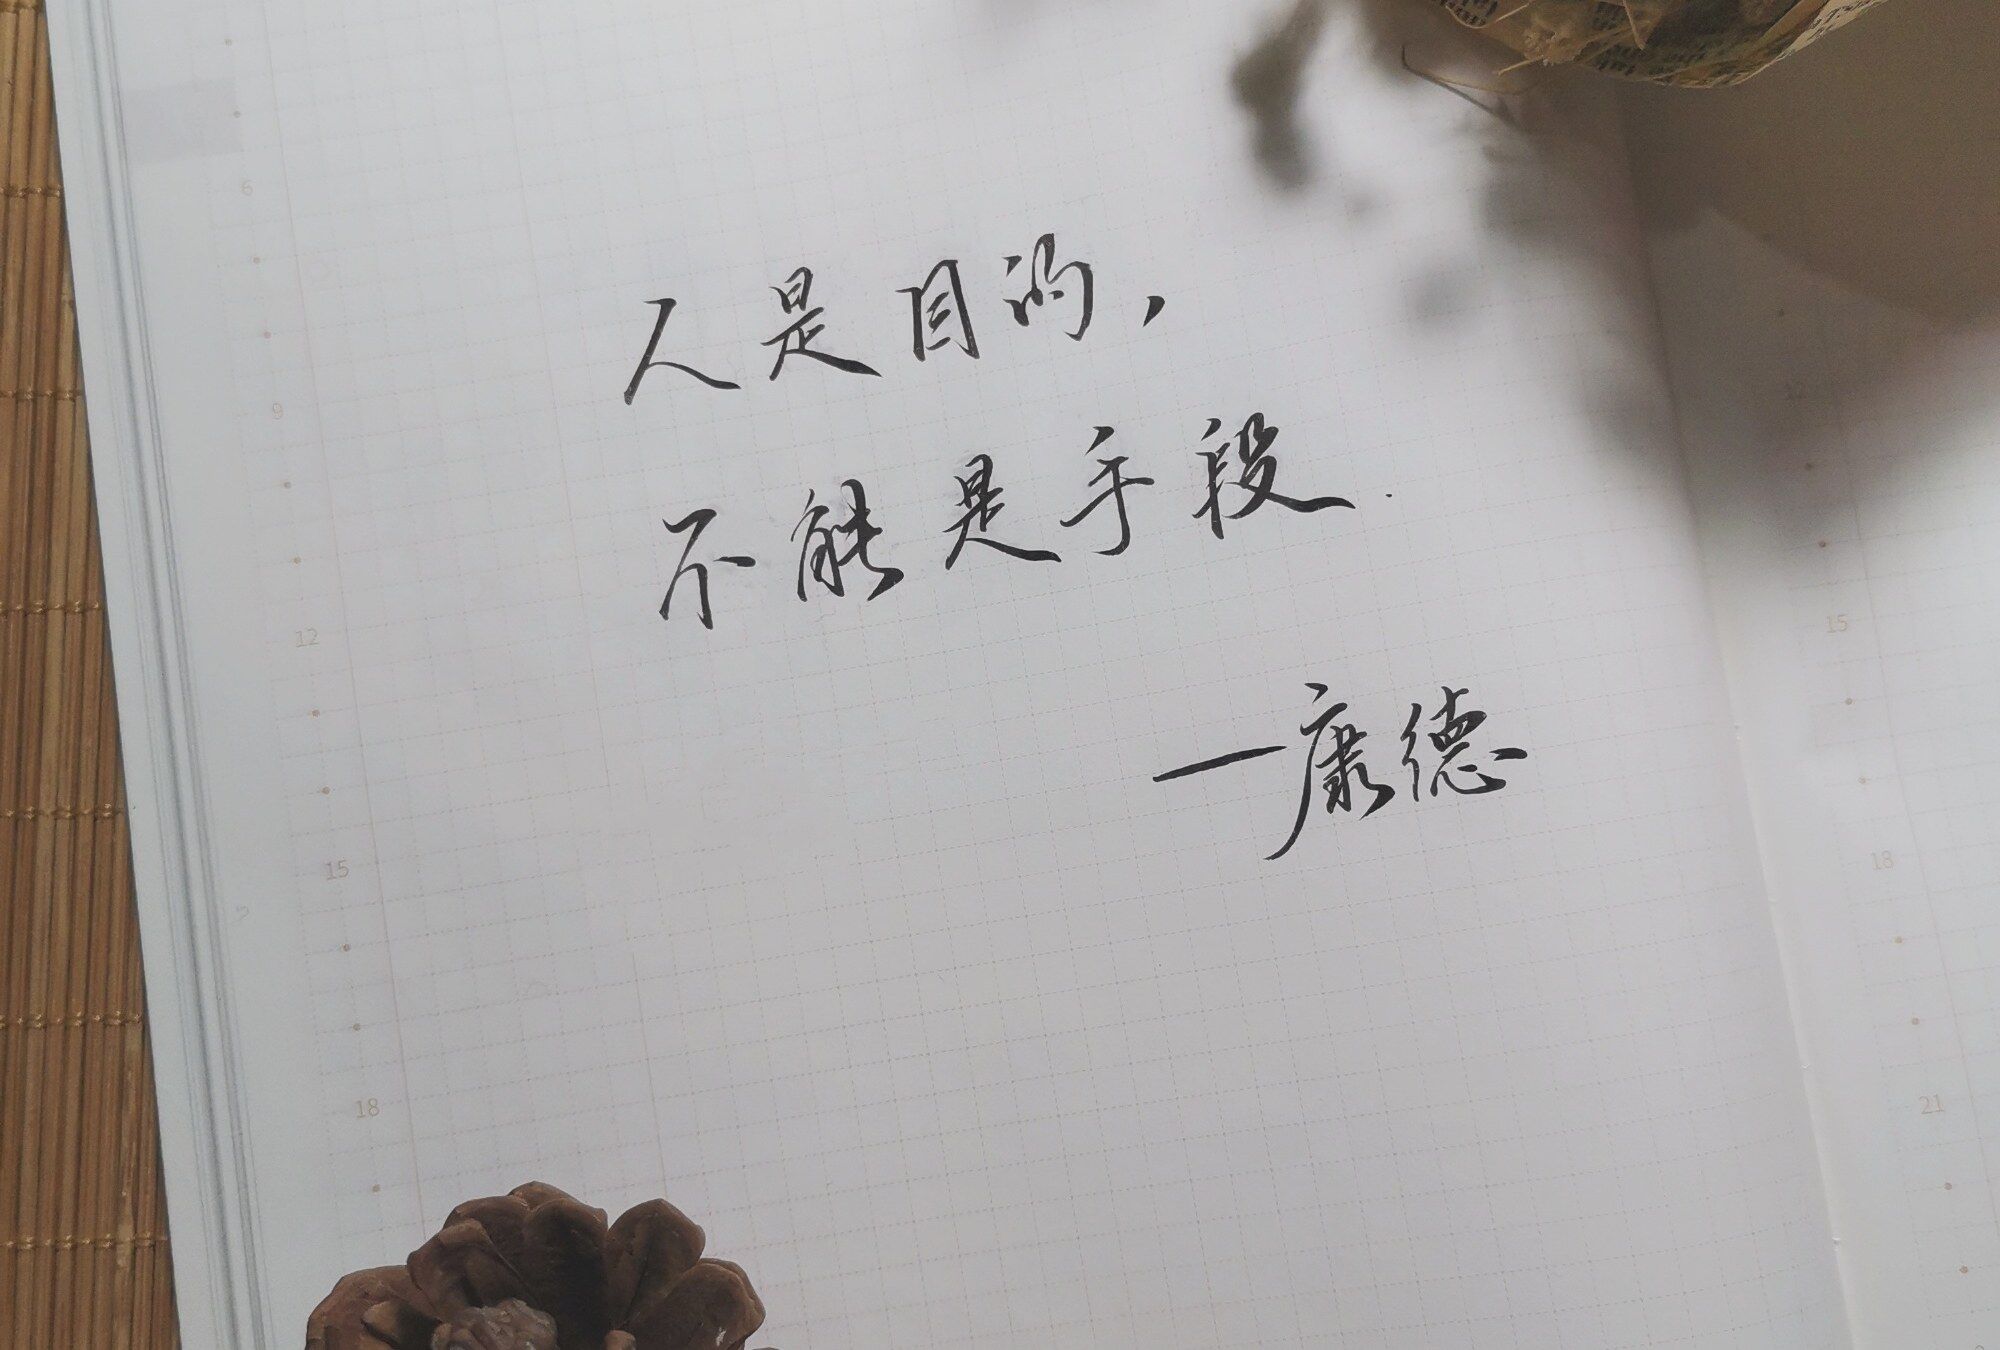 人是目的，
不能是手段.
—康德
6
9
12
15
18
15
18
21